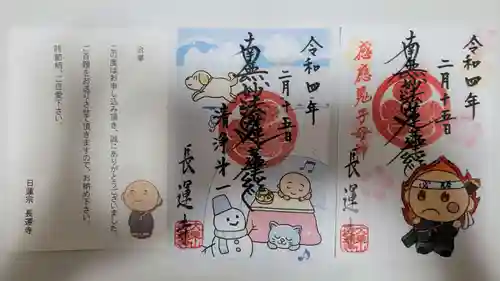 合掌
この度はお申し込み頂き、誠にありがとうございました。
ご首題をお送りさせて頂きますので、お納め下さい。
時節柄、ご自愛下さい。
日蓮宗 長運寺
令和四年
二月十五日
南無妙法蓮華経
清浄米一
長運寺
令和四年
二月十五日
南無妙法蓮華経
感應鬼子母神
長運